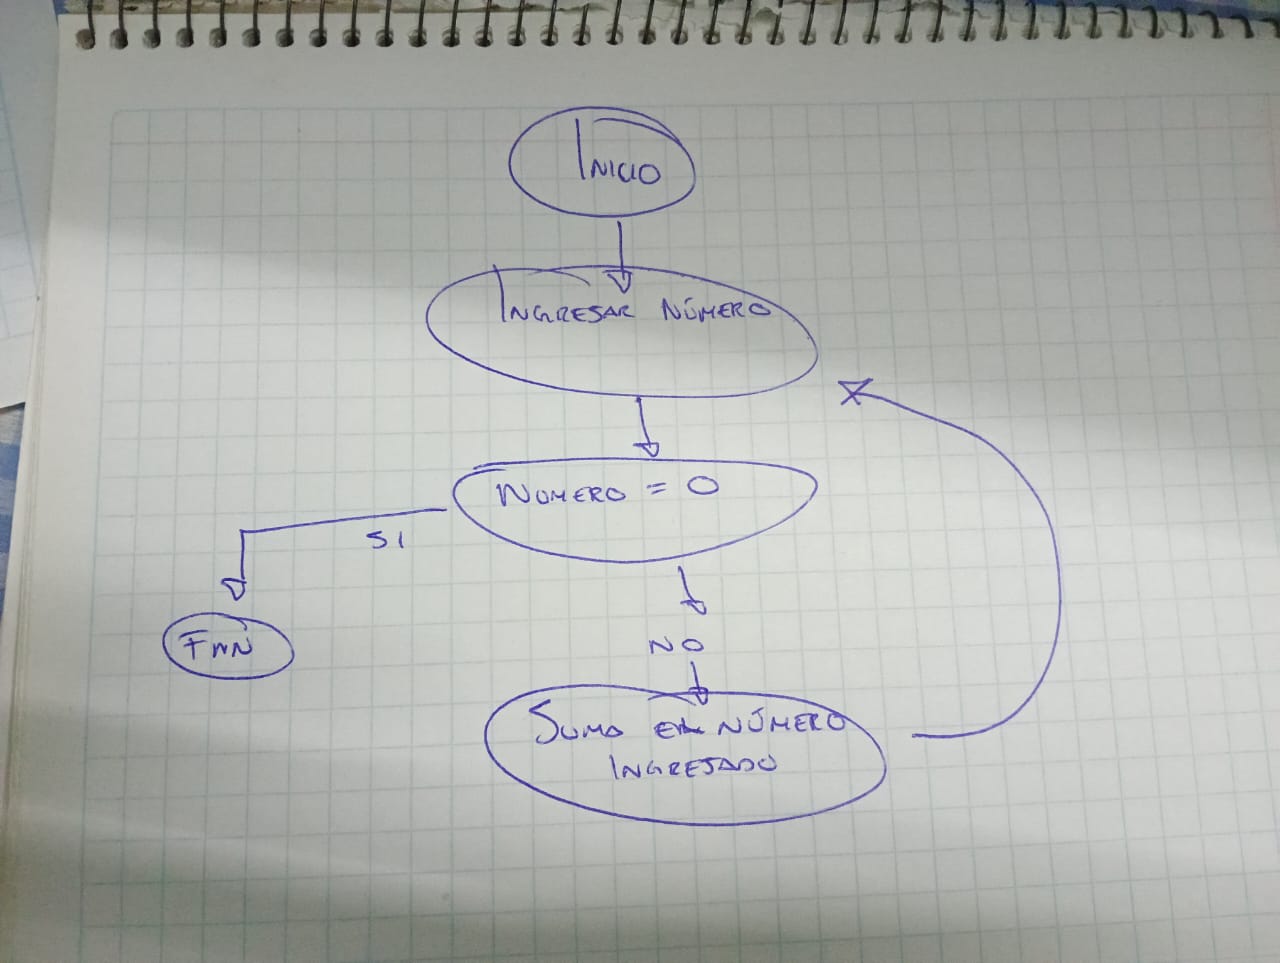 INICIO
INGRESAR NÚMERO
NUMERO = 0
SI
NO
SUMO EL NÚMERO
INGRESADO